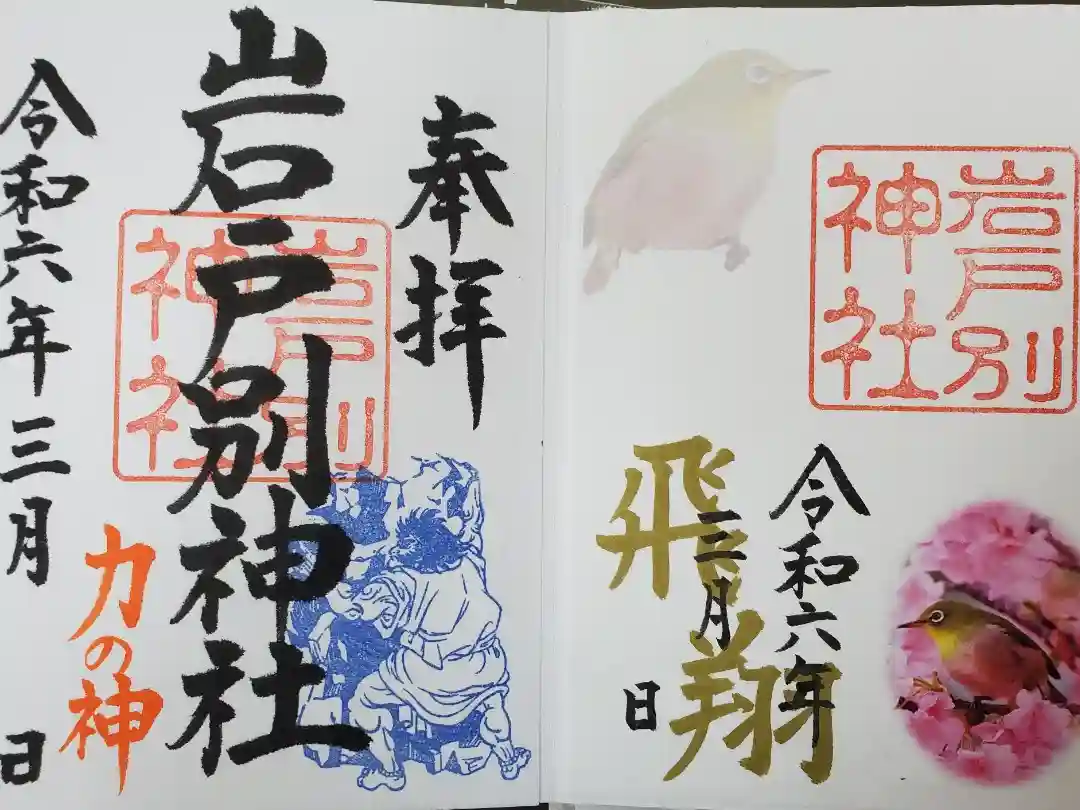 奉拝
岩戸別神社
岩戸別
神社
令和六年三月 日
力の神
岩戸別
神社
令和六年
三月 日
飛翔